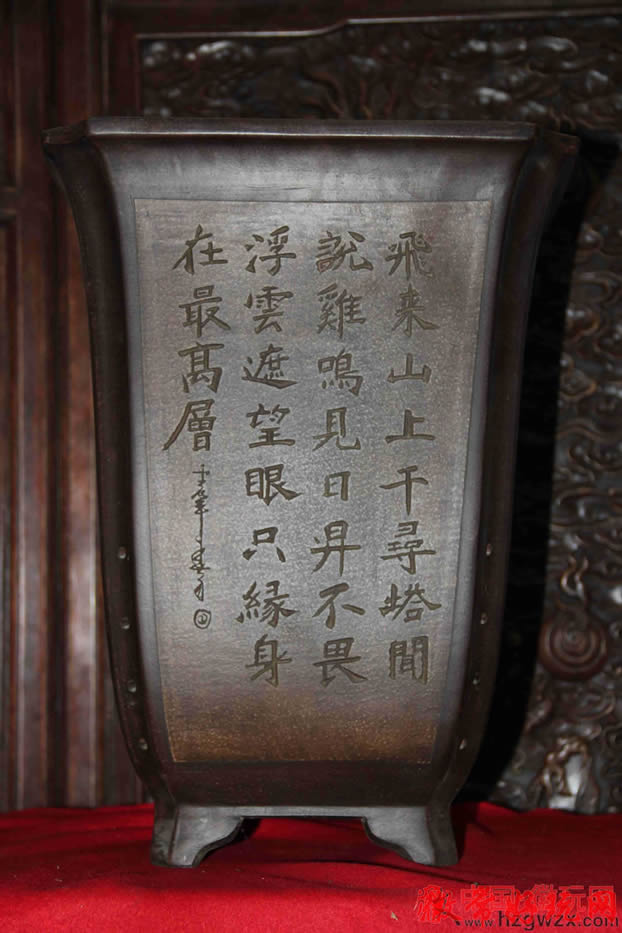 飛来山上千尋塔聞
說雞鳴見日昇不畏
浮雲遮望眼只縁身
在最高層
www.hzgwzx.com